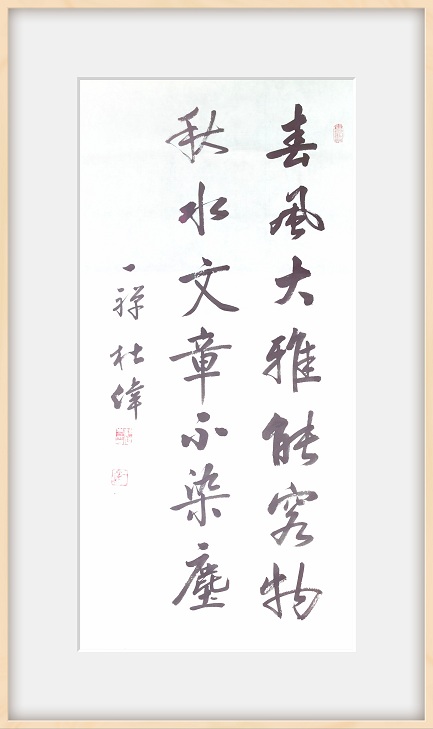 春風大雅能容物
秋水文章不染塵
一禪杜偉